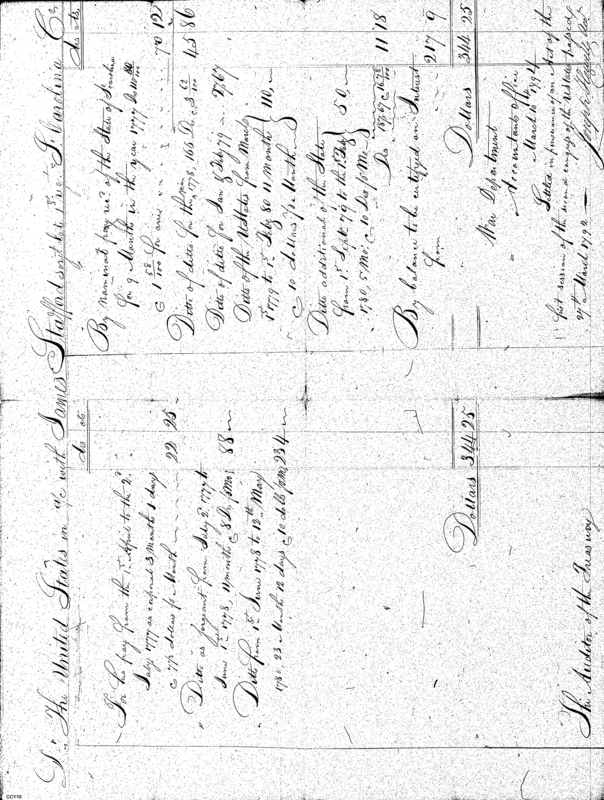 Dr. The United States in a/c with James Stafford serjt late 1st regt S. Carolina Cr.
Ds cts
To his pay from the 1st April to the 2d
July 1777 as corporal 3 Month 1 days
@ 7 1/3 dollars p Month 22 25
" Ditto as serjeant from July 2d 1777 to
June 1st 1778, 11 months @ 8 Ds p Mo 88
" Ditto from 1st June 1778 to 12th May
1780. 23 Month 12 days @ 10 dolls p Mo 234
Dollars 344 25
The Auditor of the Treasury
Ds cts
By nominal pay recd of the State of S Carolina
for 9 Month in the year 1777
@ 1 58/100 for one 70 12
Ditto of ditto for the year 1778, 166 Ds @ 3 62/100 45 86
Ditto of ditto for Jany & Feby 79 27,67
Ditto of the UStates from March
1st 1779 to 1st Feby 80 11 Month
@ 10 dollars p Month 110,
Ditto additional of the State
from 1st Sept. 79 to the 1st Feby
1780, 5 Mo @ 10 Ds p Mo 50
Ds 187,67 @ 16.78/100 11 18
By balance to be certified on Interest
from 217 9
Dollars 344 25
War Department
Accountants Office
March 10th 1794
Stated in pursuance of an Act of the
first session of the second congress of the UStates passed
27th March 1792
Joseph Howell
CCY10